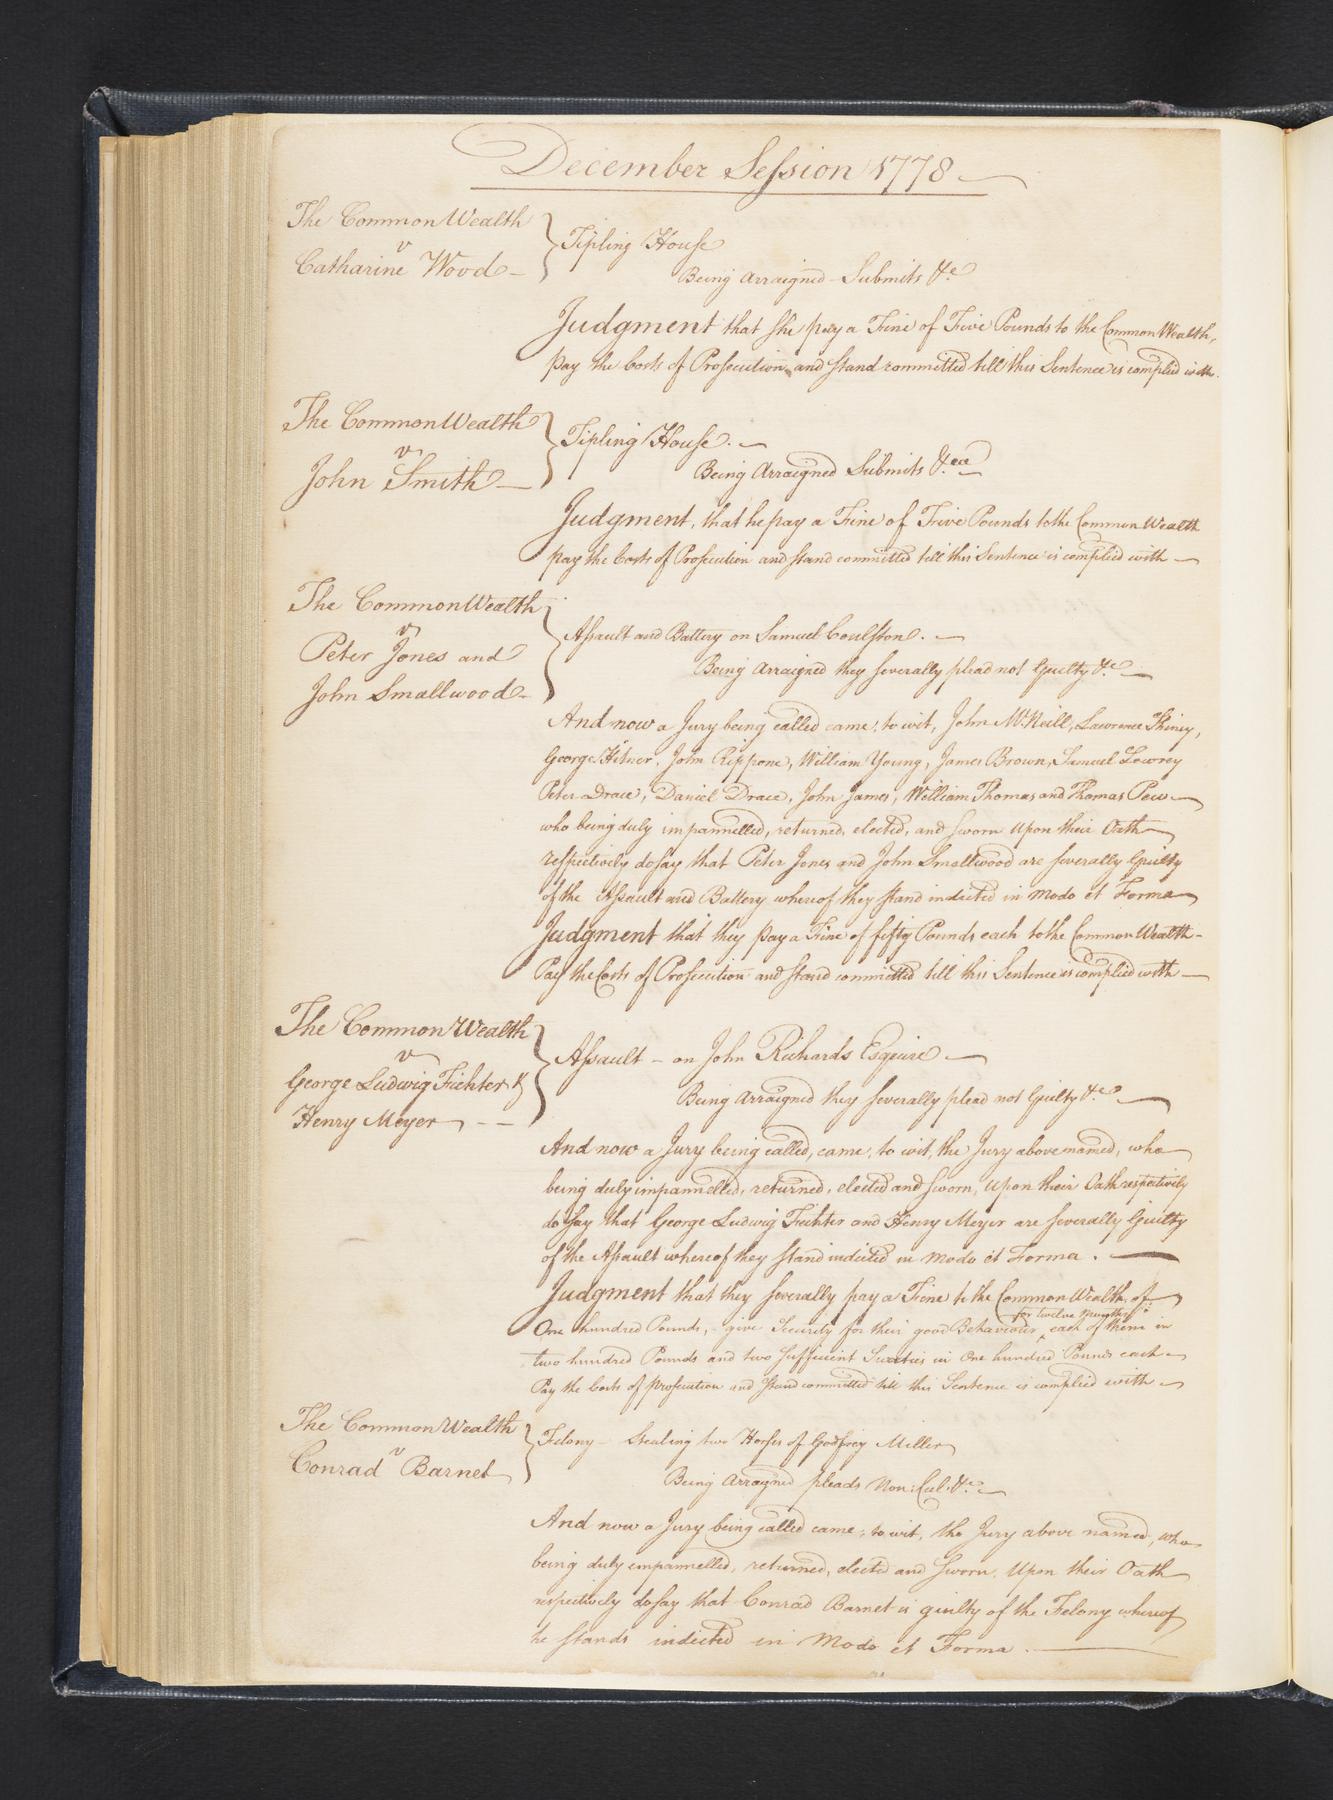 December Session 1778
The CommonWealth
v
Catharine Wood
Tipling House
Being Arraigned Submits &c
Judgment that she pay a Fine of Five Pounds to the CommonWealth,
pay the Costs of Prosecution and stand committed till this Sentence is complied with.
The CommonWealth
v
John Smith
Tipling House.
Being Arraigned Submits &ca
Judgment, that he pay a Fine of Five Pounds to the Common Wealth
pay the Costs of Prosecution and stand committed till this Sentence is complied with
The CommonWealth
v
Peter Jones and
John Smallwood
Assault and Battery on Samuel Coulston.
Being Arraigned they severally plead not Guilty &c
And now a Jury being called came, to wit, John McNeill, Lawrence
George Hitner, John Rippone, William Young, James Brown, Samuel Lowrey
Peter Drace, Daniel Drace, John James, William Thomas and Thomas Pew
who being duly impannelled, returned, elected, and sworn Upon their Oath
respectively do say that Peter Jones and John Smallwood are severally Guilty
of the Assault and Battery whereof they stand indicted in Modo et Forma
Judgment that they pay a Fine of fifty Pounds each to the Common Wealth
Pay the Costs of Prosecution and stand committed till this Sentence is complied with
The Common Wealth
v
George Ludwig Fichter &
Henry Meyer
Assault - on John Richards Esquire
Being Arraigned they severally plead not Guilty &c
And now a Jury being called, came, to wit, the Jury above named, who
being duly impannelled, returned, elected and sworn, Upon their Oath respectively
do say that George Ludwig Fichter and Henry Meyer are severally Guilty
of the Assault whereof they stand indicted in Modo et Forma.
Judgment that they severally pay a Fine to the Common Wealth of
for twelve Months
One hundred Pounds, - give Security for their good Behaviour each of them in
two hundred Pounds and two sufficient Sureties in One hundred Pounds each
Pay the Costs of prosecution and stand committed till this Sentence is complied with
The Common Wealth
v
Conrad Barnet
Felony - Stealing two Horses of Godfrey Miller
Being Arraigned pleads Non Cul. &c
And now a Jury being called came, to wit, the Jury above named, who
being duly empannelled, returned, elected and sworn, Upon their Oath
respectively do say that Conrad Barnet is guilty of the Felony whereof
he stands indicted in Modo et Forma.